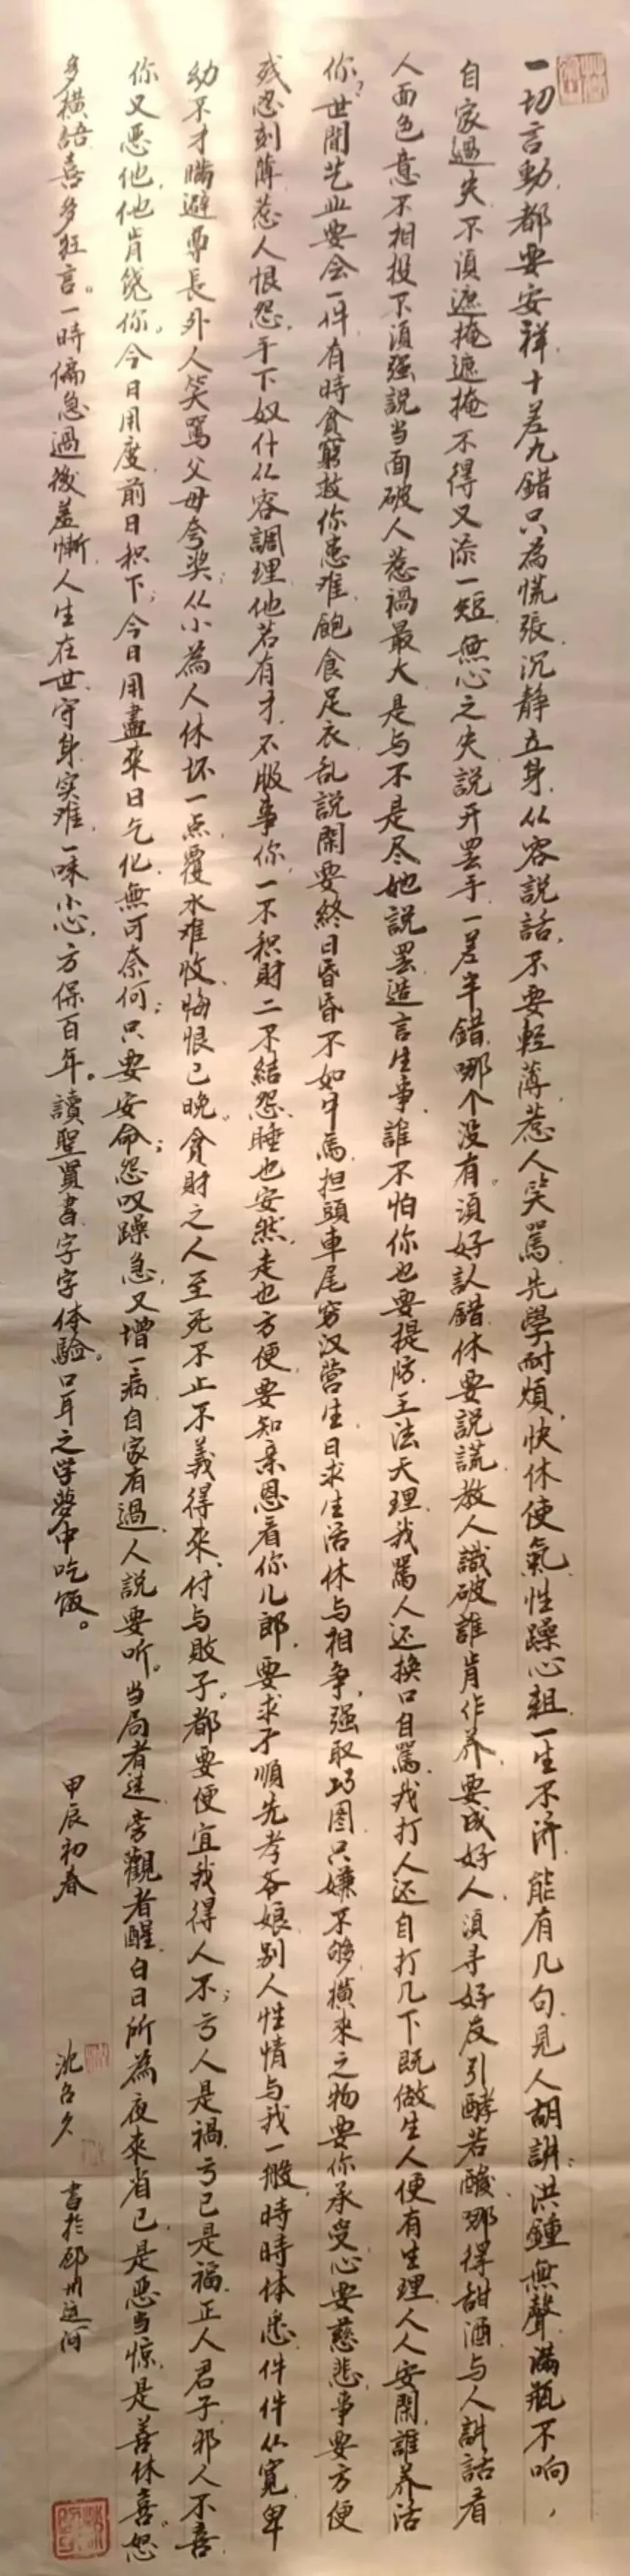 一切言動,都要安祥,十差九錯只為慌張,沉靜立身,从容説話,不要輕薄,惹人笑罵,先學耐煩,快休使氣,性躁心粗,一生不济,能有几句,見人胡講,洪鍾無聲,满瓶不响,
自家過失,不湏遮掩遮掩不得又添一短,無心之失説开罢手,一差半錯,哪个没有。湏好認錯,休要説謊,教人識破,誰肯作养,要成好人,湏寻好友,引酵若酸,哪得甜酒,与人講話看
人面色意不相投不湏强説当面破人惹禍最大是与不是尽她説罢造言生事,誰不怕你也要提防,王法天理,我罵人还换口自罵,我打人还自打几下既做生人便有生理人人安閑,誰养活
你?世間艺业要会一件,有時貧窮救你患难,飽食足衣,乱説閑耍終日昏昏不如牛馬担頭車尾穷汉营生日求生活休与相争,强取巧图只嫌不够橫來之物要你承受心要慈悲,事要方便
残忍刻薄,惹人恨怨,手下奴什从容調理他若有才,不服事你,一不积財二不結怨,睡也安然,走也方便,要知亲恩看你儿郎,要求子順先孝爷娘别人性情与我一般,時時体悉件件从寬卑
幼不才瞒避尊長外人笑罵父母夸奖;从小為人休坏一点,覆水难收悔恨已晚。貪財之人至死不止不義得來,付与敗子。都要便宜我得人不;亏人是禍,亏己是福,正人君子邪人不喜
你又恶他,他肯饶你。今日用度,前日积下;今日用盡來日乞化,無可奈何;只要安命;怨叹躁急,又增一病自家有過,人説要听。当局者迷旁觀者醒,白日所為夜來省已,是恶当惊,是善休喜。怒
多橫語喜多狂言。一時偏急過後羞慚,人生在世,守身实难,一味小心,方保百年。讀聖賢書字字体驗。口耳之学夢中吃饭。
甲辰初春
書於邳州运河